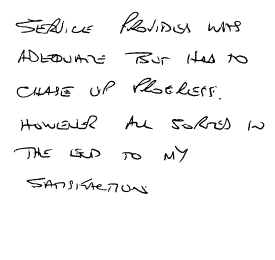 SERVICE PROVIDED WAS
ADEQUATE BUT HAD TO
CHASE UP PROGRESS.
HOWEVER ALL SORTED IN
THE END TO MY
SATISFACTION